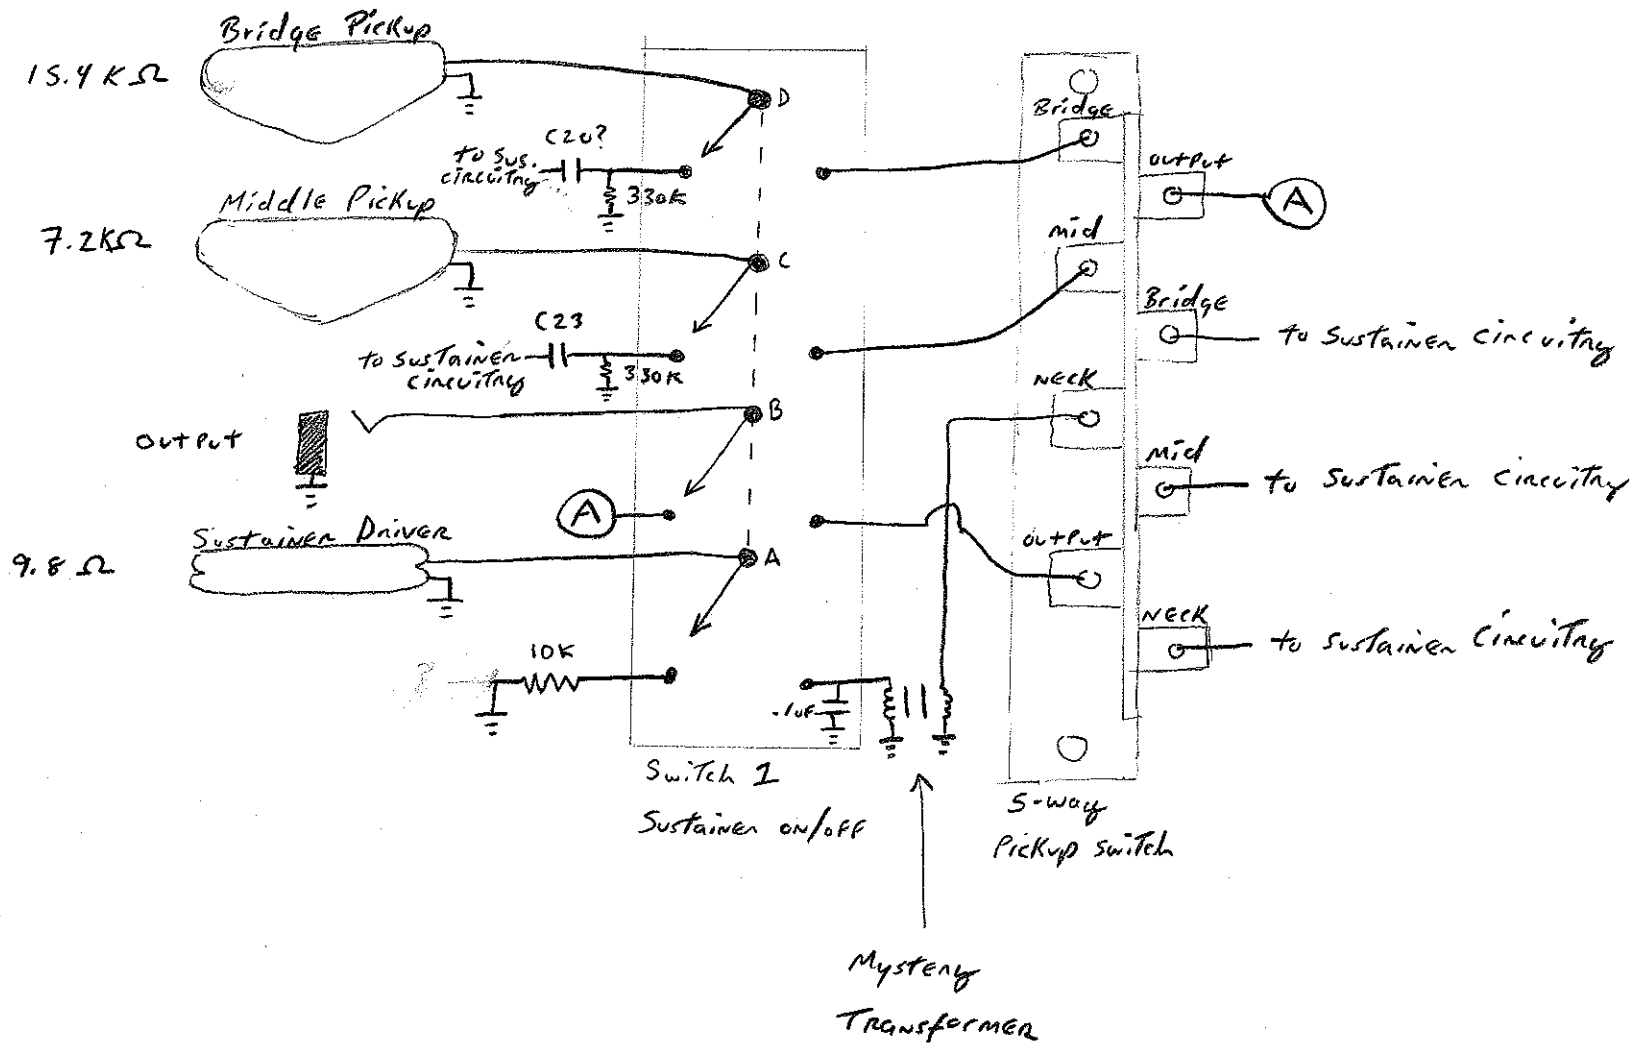 Bridge Pickup
15.4 K Ω
D
C20?
to sus.
circuitry
330K
Middle Pickup
7.2KΩ
C
C23
to sustainer
circuitry
330K
B
output
A
Sustainer Driver
9.8 Ω
A
10K
.1uF
Switch 1
Sustainer on/off
Mystery
Transformer
Bridge
output
A
Mid
Bridge
to Sustainer circuitry
NECK
Mid
to Sustainer Circuitry
output
NECK
to sustainer Circuitry
5-way
Pickup switch